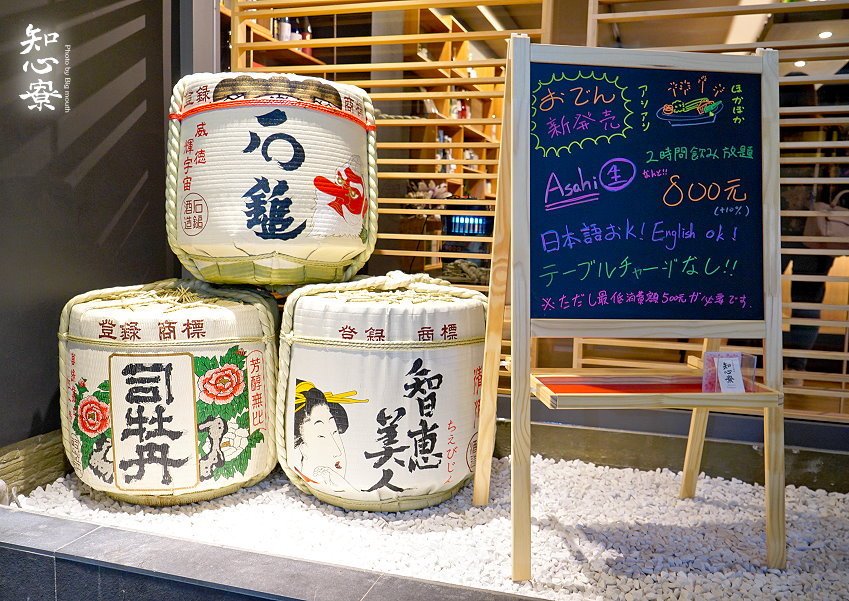 知心寮
Photo by Big mouth
登録
威徳
輝宇宙
石鎚
酒造
石鎚
登録 商標
司牡丹
芳醇無比
登録 商標
智恵
美人
ちえびじん
おでん
新発売
アツアツ
ほかほか
2時間飲み放題
Asahi 生
なんと!!
800元
(+10%)
日本語おk! English ok!
テーブルチャージなし!!
※ただし最低消費額500元が必要です.
知心寮